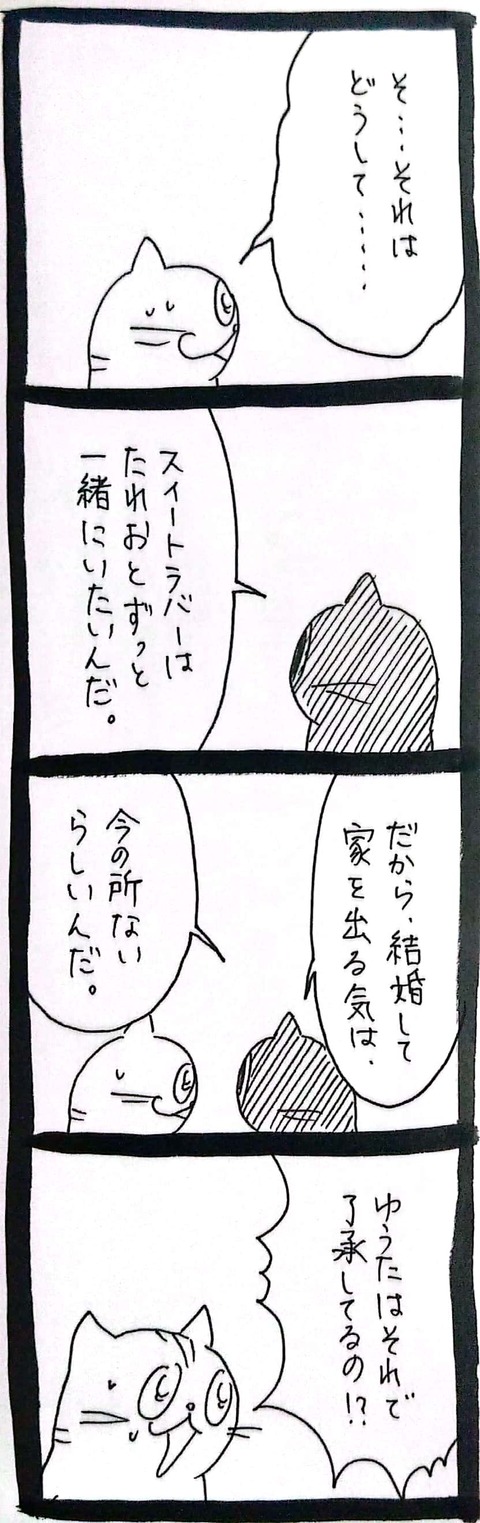 そ…それは
どうして……
スイートラバーは
たれおとずっと
一緒にいたいんだ。
だから、結婚して
家を出る気は、
今の所ない
らしいんだ。
ゆうたはそれで
了承してるの!?